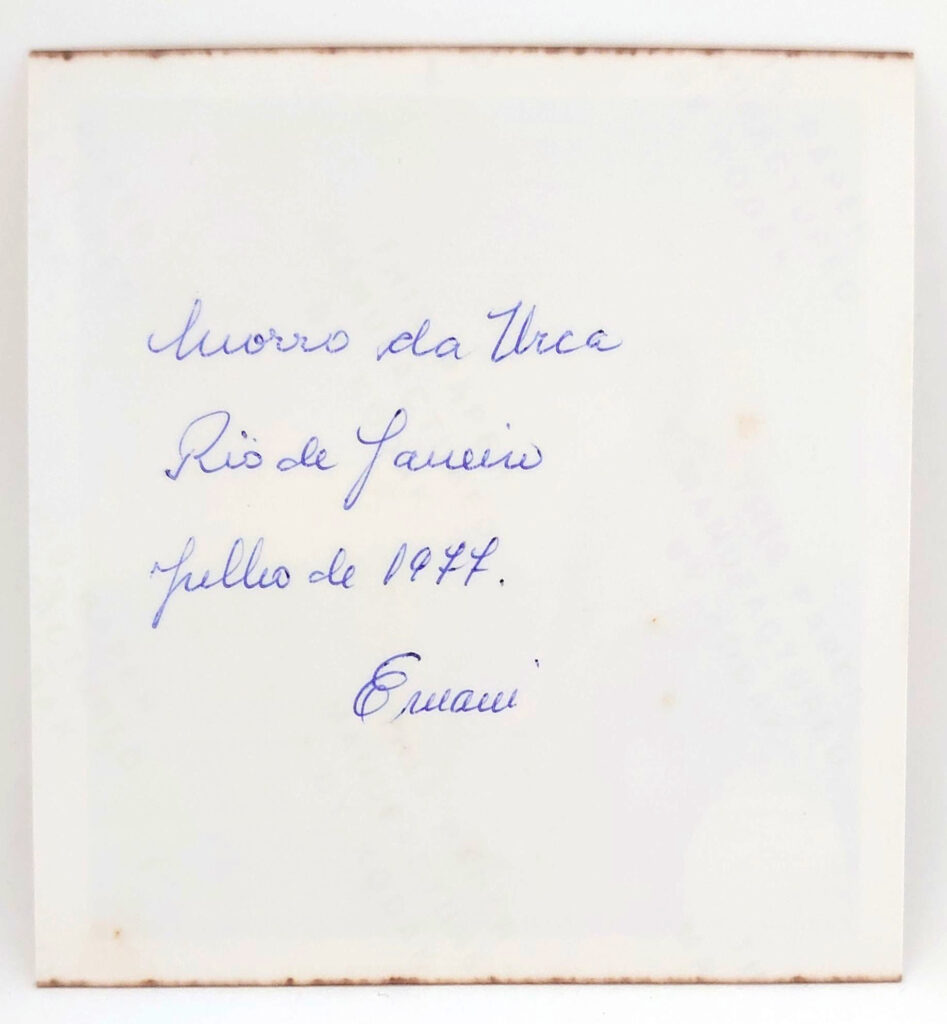 Morro da Urca
Rio de Janeiro
Julho de 1977.
Ernani